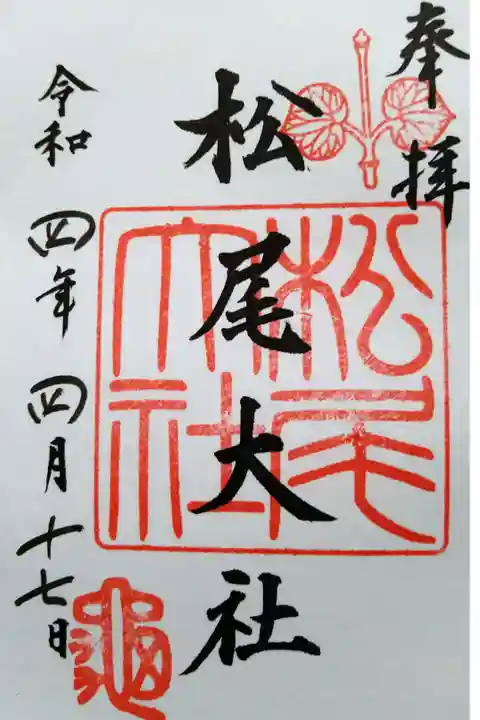 奉拝
松尾大社
松尾大社
令和四年四月十七日